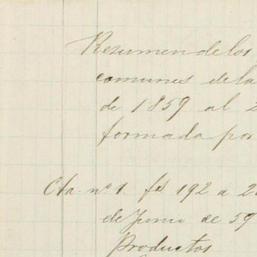 Resumen de los
comunes de la
de 1859 al 2
formada por
Cta nº 1 fs 192 a 2
de Junio de 59
Productos